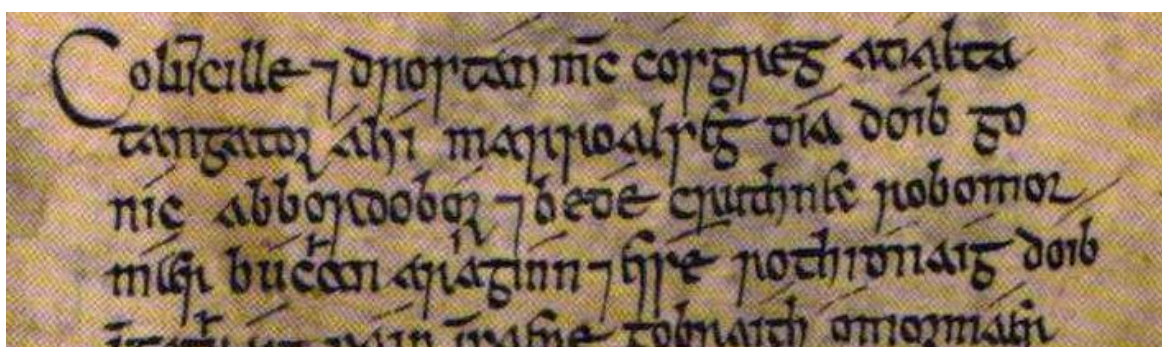 Colũcille ⁊ drostán mc̄ cosgreg adálta
tangator áhi marroalseg día dóib go
níc abbordobor ⁊ béde cruthnec robomor
mær buchan araginn ⁊ esse rothidnaíg dóib
sain gobraith